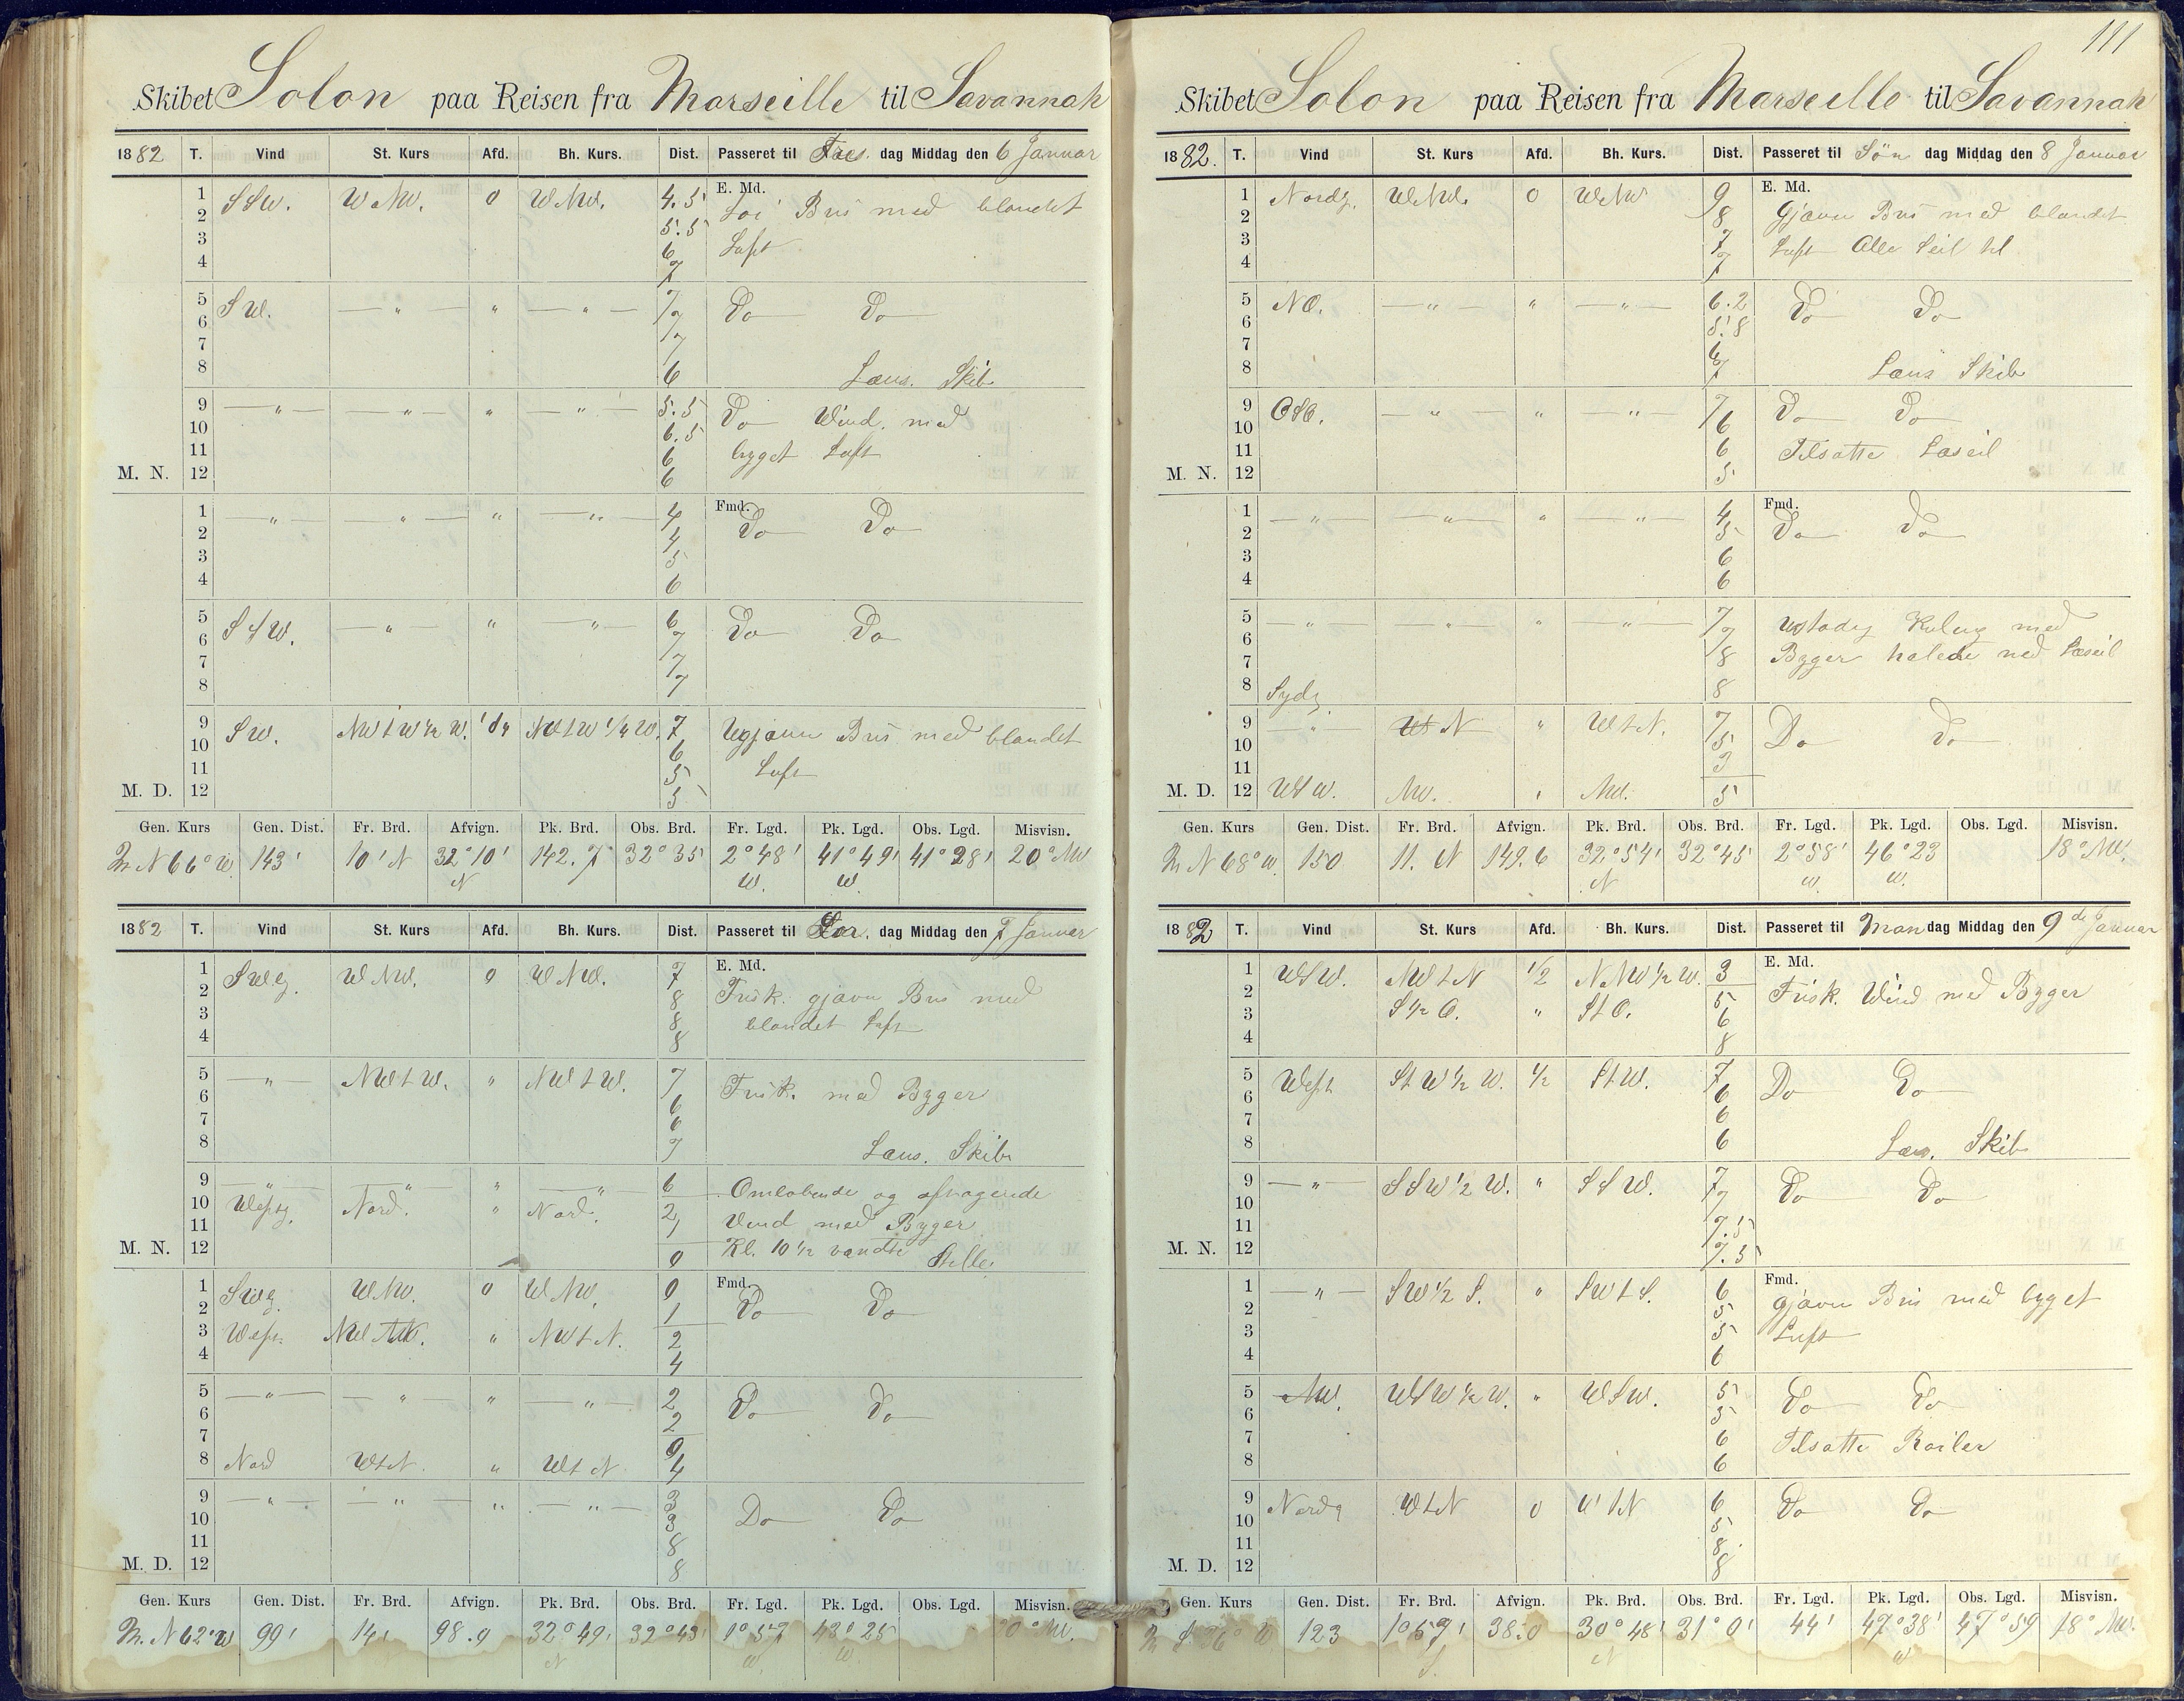 111
Skibet Solon paa Reisen fra Marseille til Savannah
1882 T. Vind St. Kurs Afd. Bh. Kurs. Dist. Passeret til Fre dag Middag den 6 Januar
1 SSW. WNW. 0 WNW. 4.5 E. Md.
2 5.5 Bris med blandet
3 6 Luft
4 7
5 SW. — " — " — " — 7 Do Do
6 7
7 7
8 6 Læns. Skib
9 — " — — " — " — " — 5.5 Do Wind. med
10 6.5
11 6 byget Luft
M. N. 12 6
1 — " — — " — " — " — 4 Fmd. Do Do
2 4
3 5
4 6
5 SSW. — " — " — " — 6 Do Do
6 7
7 7
8 7
9 SW. NWtW½W. 1/4 NWtW¼W. 7 Ugjævn Bris med blandet
10 6
11 5 Luft
M. D. 12 5
Gen. Kurs Gen. Dist. Fr. Brd. Afvign. Pk. Brd. Obs. Brd. Fr. Lgd. Pk. Lgd. Obs. Lgd. Misvisn.
N 66° W. 143' 10' N 32°10' N 142.7 32°35 2°48' W. 41°49' W. 41°28' 20° NW
1882 T. Vind St. Kurs Afd. Bh. Kurs. Dist. Passeret til Lør. dag Middag den 7 Januar
1 SWlg. WNW. 0 WNW. 7 E. Md.
2 8 Frisk. gjævn Bris med
3 8 blandet Luft
4 8
5 — " — NWtW. " NWtW. 7 Frisk. med Byger
6 6
7 6
8 7 Læns. Skib
9 — " — — " — " — " — 6 Omløbende og aftagende
10 Westlg. Nord. " Nord. 2
11 1 Vind med Byger
M. N. 12 0 Kl. 10½ vendte Stille
1 SWlg. WNW. 0 WNW. 0 Fmd. Do Do
2 1
3 West. NW " NWtN. 2
4 4
5 — " — — " — " — " — 2 Do Do
6 2
7 9
8 Nord WtN. " WtN 4
9 — " — — " — " — " — 3 Do Do
10 3
11 8
M. D. 12 8
Gen. Kurs Gen. Dist. Fr. Brd. Afvign. Pk. Brd. Obs. Brd. Fr. Lgd. Pk. Lgd. Obs. Lgd. Misvisn.
N 62° W 99' 14' 98.0 32°49' N 32°43' 1°57 W. 43°25 W. 20° NW.
Skibet Solon paa Reisen fra Marseille til Savannah
1882. T. Vind St. Kurs Afd. Bh. Kurs. Dist. Passeret til Søn dag Middag den 8 Januar
1 Nordlg. WNW. 0 WNW 9 E. Md.
2 8 Gjævn Bris med blandet
3 7 Luft Alle Seil til
4 7
5 NO. — " — " — " — 6.2 Do Do
6 5.8
7 6
8 7 Læns Skib
9 OSO. — " — " — " — 7 Do Do
10 6
11 6 Tilsatte Læseil
M. N. 12 5
1 — " — — " — " — " — 4 Fmd. Do Do
2 5
3 6
4 6
5 — " — — " — " — " — 7 Ustadig Kuling med
6 7
7 8 Byger halede ned Læseil
8 Sydlg. 8
9 — " — Wt N " WtN. 7 Do Do
10 5
11 3
M. D. 12 WSW. NW. " NW. 5
Gen. Kurs Gen. Dist. Fr. Brd. Afvign. Pk. Brd. Obs. Brd. Fr. Lgd. Pk. Lgd. Obs. Lgd. Misvisn.
N 68° W. 150 11. N 149.6 32°54' N 32°45 2°58' W. 46°23 W. 18° NW.
1882 T. Vind St. Kurs Afd. Bh. Kurs. Dist. Passeret til Man dag Middag den 9de Januar
1 WSW. NWtN 1/2 NNW½W. 3 E. Md.
2 5 Frisk. Wind med Byger
3 S½O. " StO. 6
4 8
5 West StW½W. 1/2 StW. 7 Do Do
6 6
7 6
8 6 Læns. Skib
9 — " — SSW½W. " SSW. 7 Do Do
10 7
11 7.5
M. N. 12 7.5
1 — " — SW½S. " SWtS. 6 Fmd.
2 5 gjævn Bris med byget
3 5 Luft
4 6
5 NW. WSW½W. " WSW. 5 Do Do
6 5
7 6 Tilsatte Røiler
8 6
9 Nordlg WtN 0 WtN 6 Do Do
10 5
11 8
M. D. 12 8
Gen. Kurs Gen. Dist. Fr. Brd. Afvign. Pk. Brd. Obs. Brd. Fr. Lgd. Pk. Lgd. Obs. Lgd. Misvisn.
S 26° W 123 1°57' S. 38.0 30°48' N 31°0' 44' 47°38' W 47°59 18° NW.